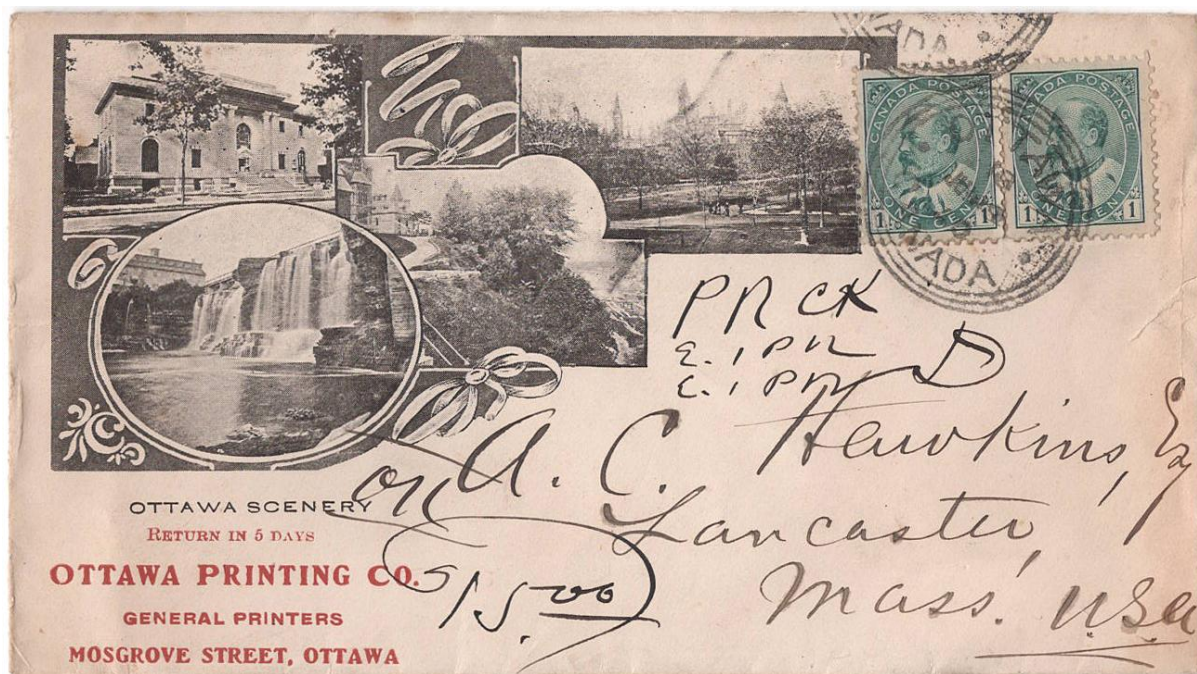 CANADA POSTAGE
1 ONE CENT 1
CANADA POSTAGE
1 ONE CENT 1
ADA
OTTAWA
CANADA
PR CK
E. 1 PR
E. 1 PR D
A. C. Hawkins, Esq
Lancaster,
Mass. USA
on
$15.00
OTTAWA SCENERY
RETURN IN 5 DAYS
OTTAWA PRINTING CO.
GENERAL PRINTERS
MOSGROVE STREET, OTTAWA